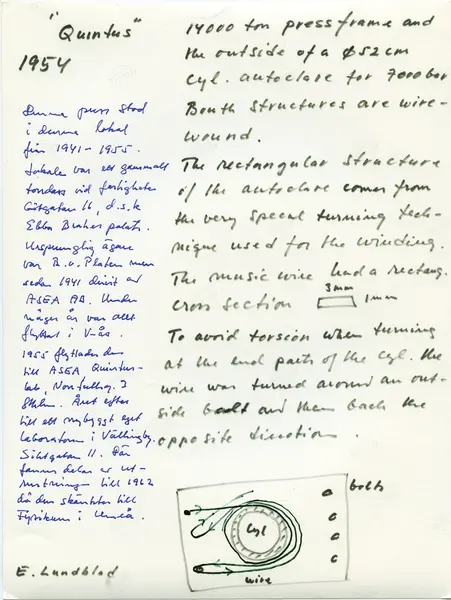 "Quintus"
1954
Denna press stod
i denna lokal
från 1941-1955.
Lokalen var ett gammalt
vid fastigheten
Götgatan 11, d.s.k
Ebba Brahes palats.
Ursprunglig ägare
var B. v. Platen men
sedan 1941 drivit av
ASEA AB. Under
några år var allt
flyttat i V-ås.
1955 flyttades den
till ASEA Quintus-
lab, 3
Sthlm. Året efter
till ett nybyggt eget
laboratorium i Vällingby.
Siktgatan 11. Där
fanns delar av ut-
rustningen till 1962
då den skänktes till
Fysikum i Umeå.
E. Lundblad
14000 ton press frame and
the outside of a ø52 cm
cyl. autoclave for 7000 bar
Bouth structures are wire-
wound.
The rectangular structure
of the autoclave comes from
the very special turning tech-
nique used for the winding.
The music wire had a rectang.
cross section 3mm 1mm
To avoid torsion when turning
at the end parts of the cyl. the
wire was turned around an out-
side bolt and then back the
opposite direction.
bolts
cyl
wire